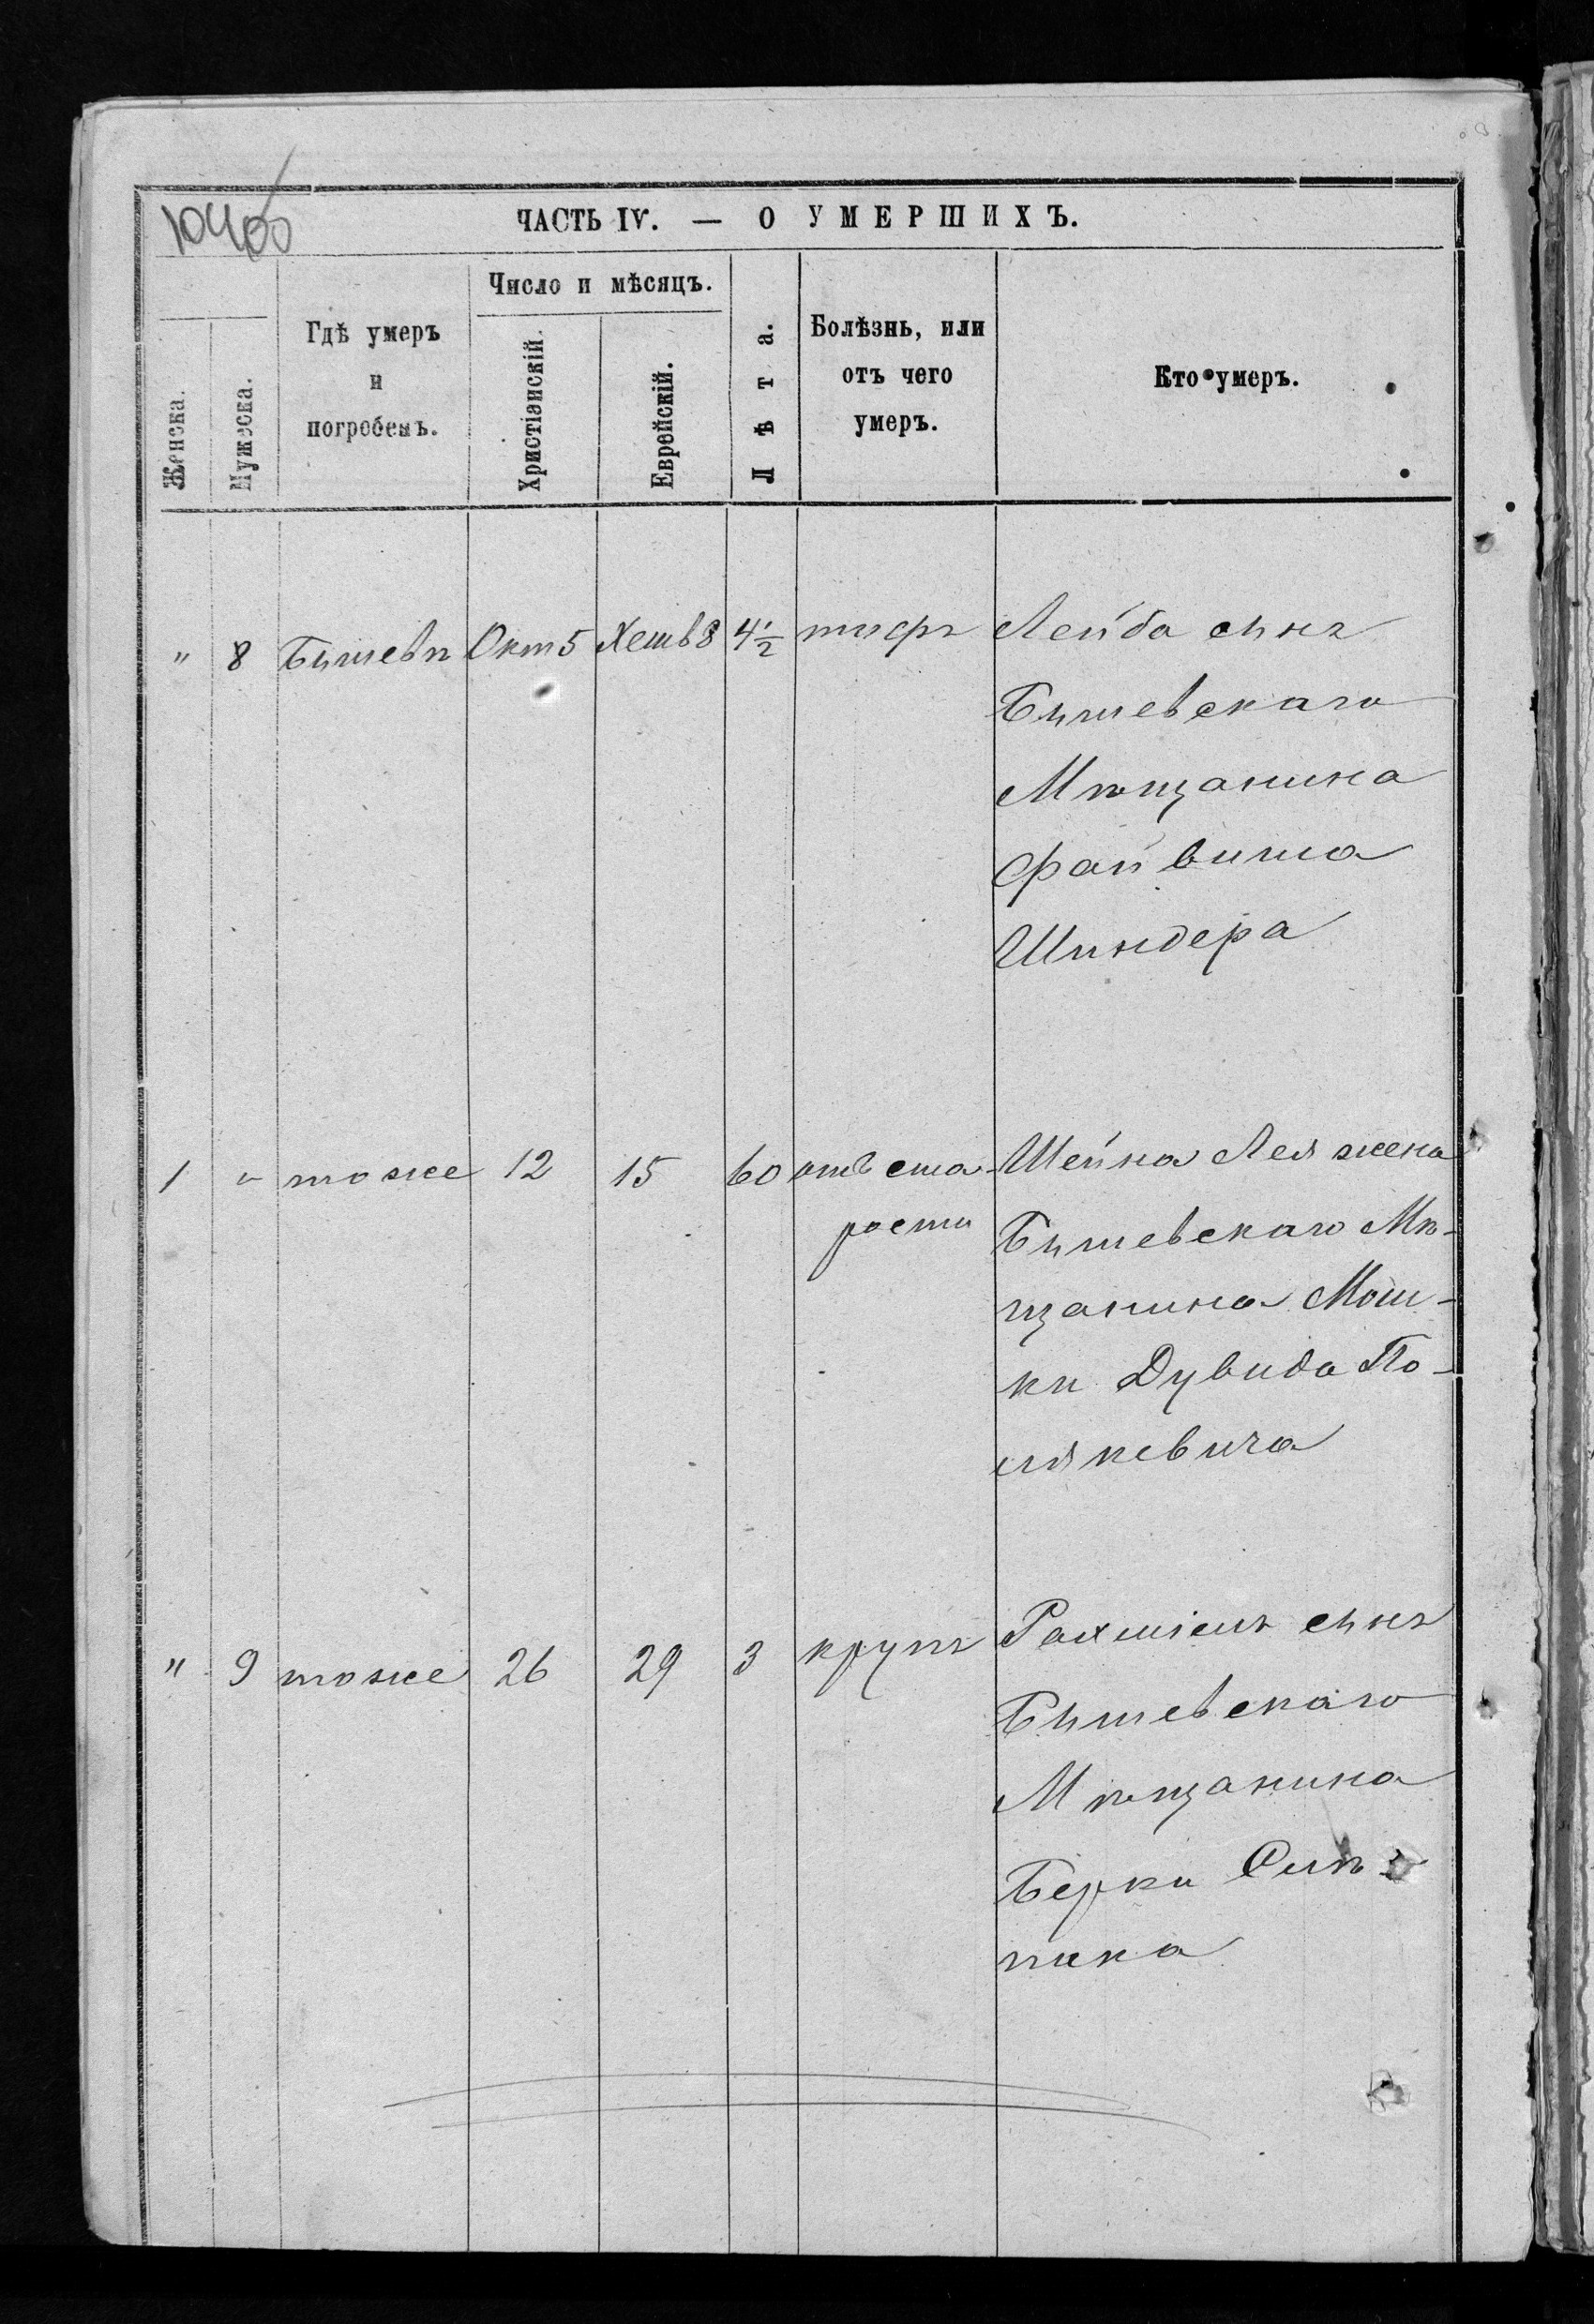 ЧАСТЬ IV. — О УМЕРШИХЪ.
Женска.
Мужеска.
Гдѣ умеръ
и
погребенъ.
Число и мѣсяцъ.
Христіанскій.
Еврейскій.
Лѣта.
Болѣзнь, или
отъ чего
умеръ.
Кто умеръ.
" 8 Бышевъ Окт 5 Хешв 8 4 1/2 тифъ Лейба сынъ
Бышевскаго
Мѣщанина
Файвиша
Шндера
1 " тоже 12 15 60 отъ ста- Шейна Лея жена
рости Бышевскаго Мѣ-
щанина Мош-
ки Дувида По-
лякевича
" 9 тоже 26 29 3 крупъ Рахміель сынъ
Бышевскаго
Мѣщанина
Берки